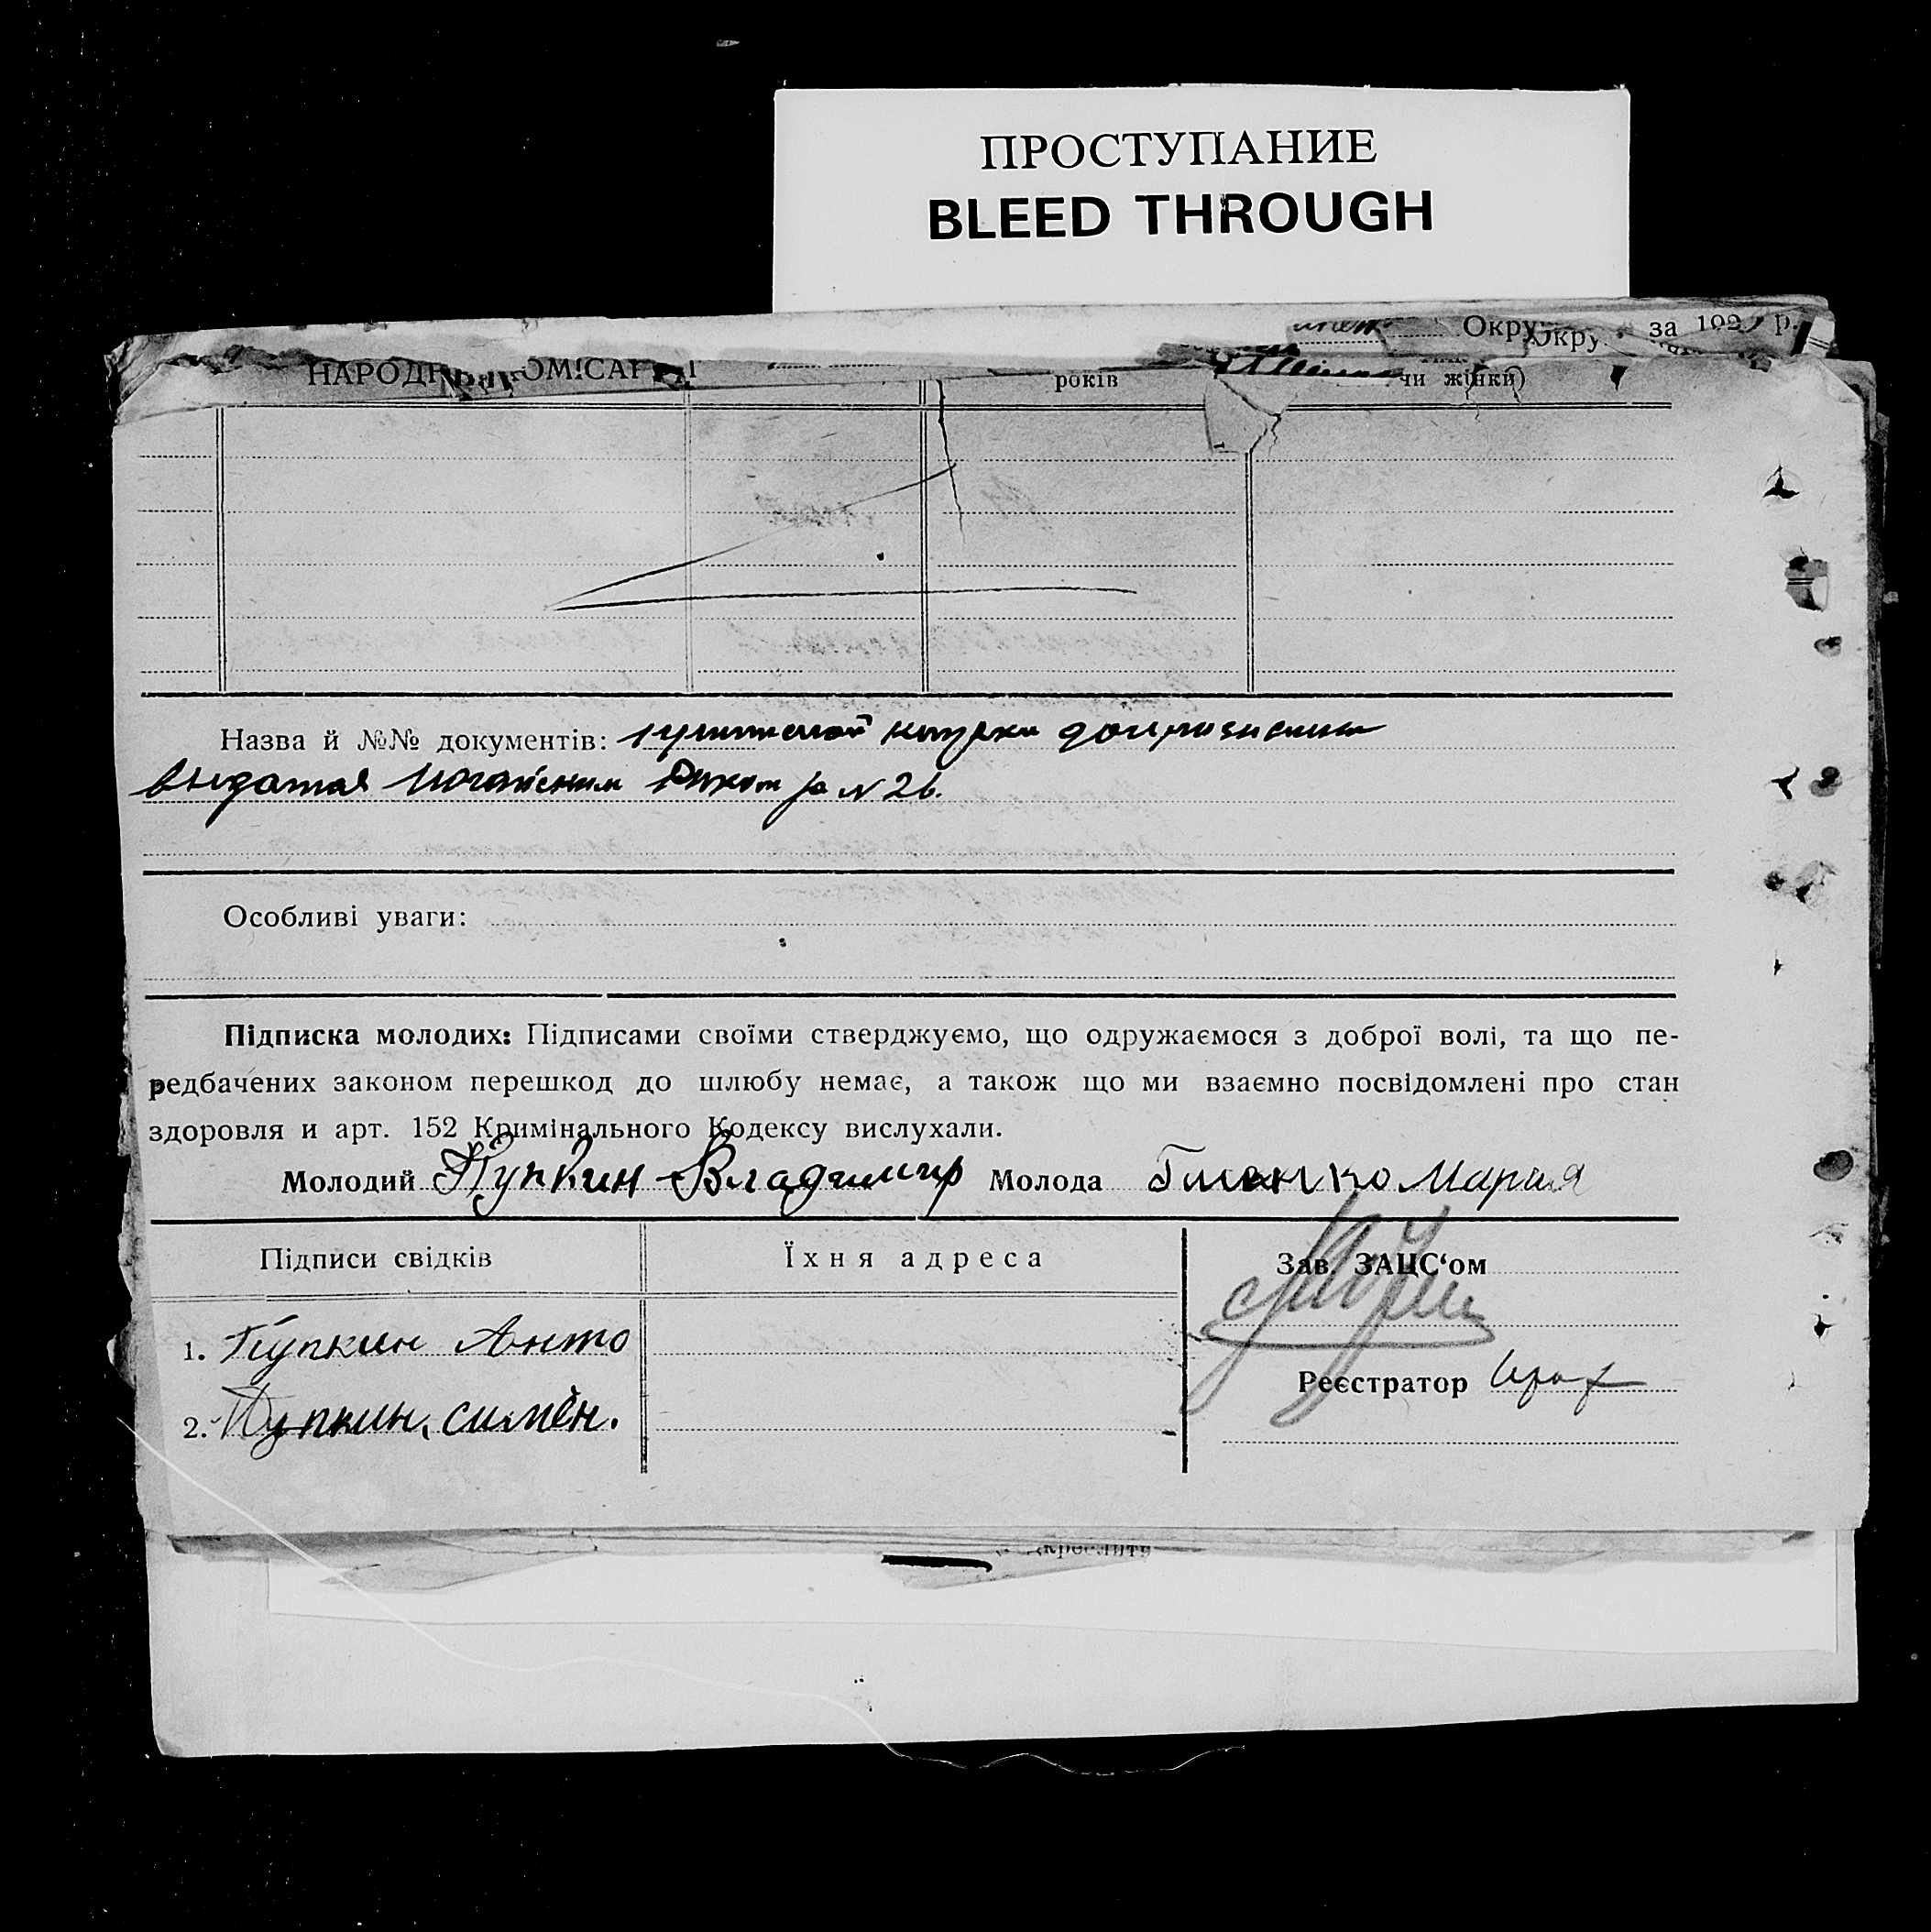 ПРОСТУПАНИЕ
BLEED THROUGH
Окру за 192 р.
НАРОДН ОМІСАР
років чи жінки)
Назва й №№ документів:
выдатая за № 26.
Особливі уваги:
Підписка молодих: Підписами своїми стверджуємо, що одружаємося з доброї волі, та що пе-
редбачених законом перешкод до шлюбу немає, а також що ми взаємно посвідомлені про стан
здоровля и арт. 152 Кримінального Кодексу вислухали.
Молодий Пупкин Владимир Молода Мария
Підписи свідків Їхня адреса Зав. ЗАЦС‘ом
1. Пупкин Анто
Реєстратор
2. Пупкин, симен.